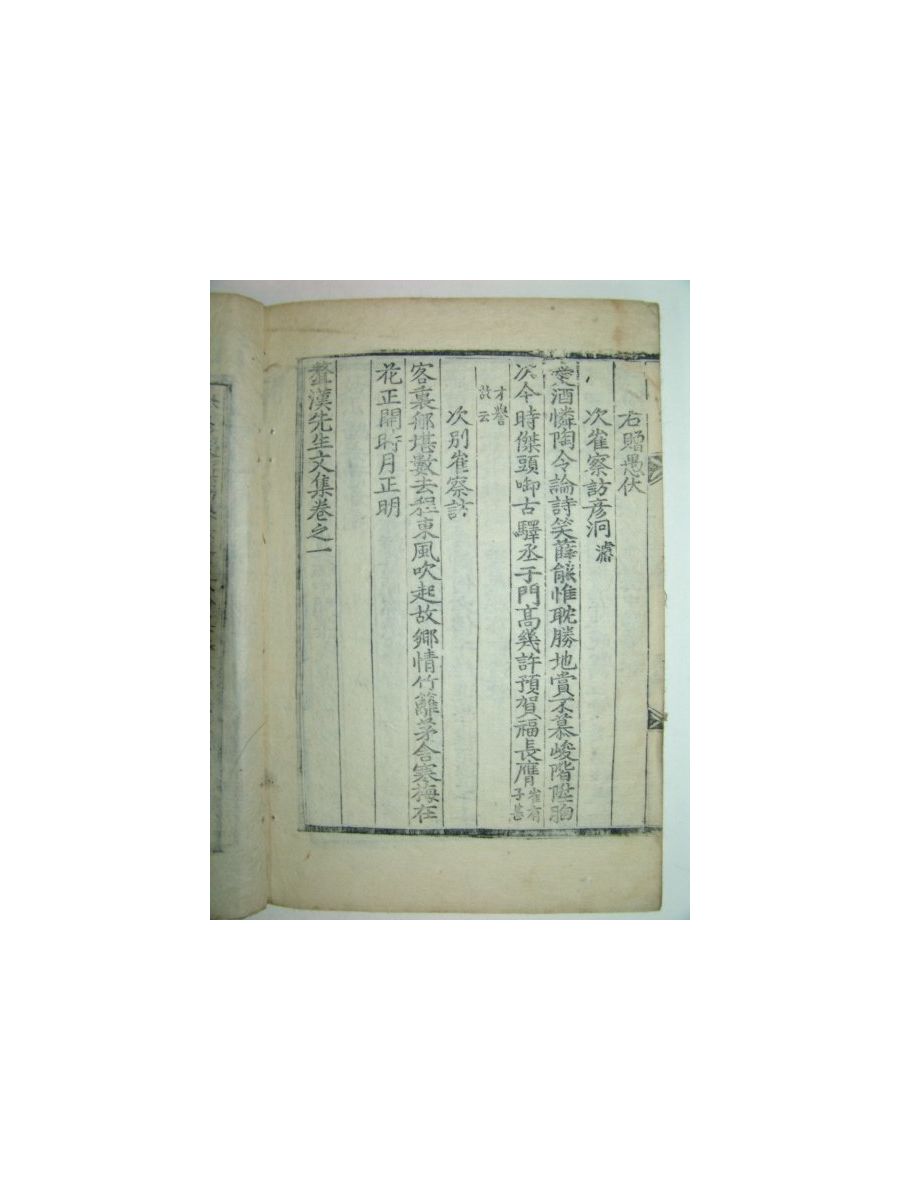 右贈愚伏
次崔察訪彦洞㵢
愛酒憐陶令論詩笑薛能惟耽勝地賞不慕峻階陞胸
次今時傑頭啣古驛丞子門高幾許預賀福長膺崔有子甚
才譽故云
次別崔察訪
客裏那堪數去程東風吹起故鄕情竹籬茅舍寒梅在
花正開時月正明
鰲漢先生文集卷之一